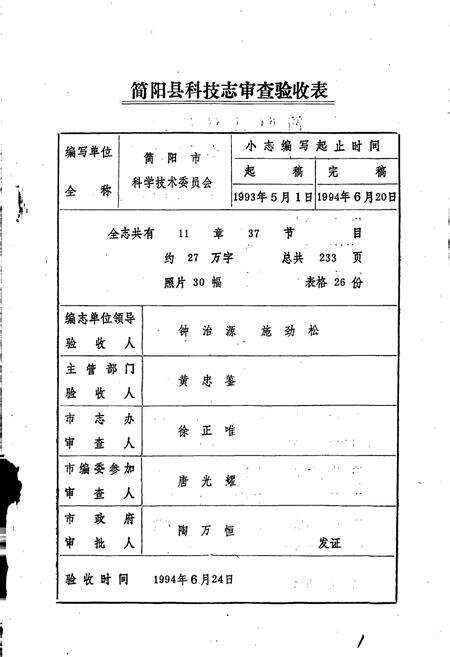 简阳县科技志审查验收表
编写单位
全称
简阳市
科学技术委员会
小志编写起止时间
起稿
完稿
1993年5月1日
1994年6月20日
全志共有 11 章 37 节 目
约 27 万字 总共 233 页
照片 30 幅 表格 26 份
编志单位领导
验收人
钟治源 施劲松
主管部门
验收人
黄忠鉴
市志办
审查人
徐正唯
市编委参加
审查人
唐光耀
市政府
审批人
陶万恒
发证
验收时间 1994年6月24日
1